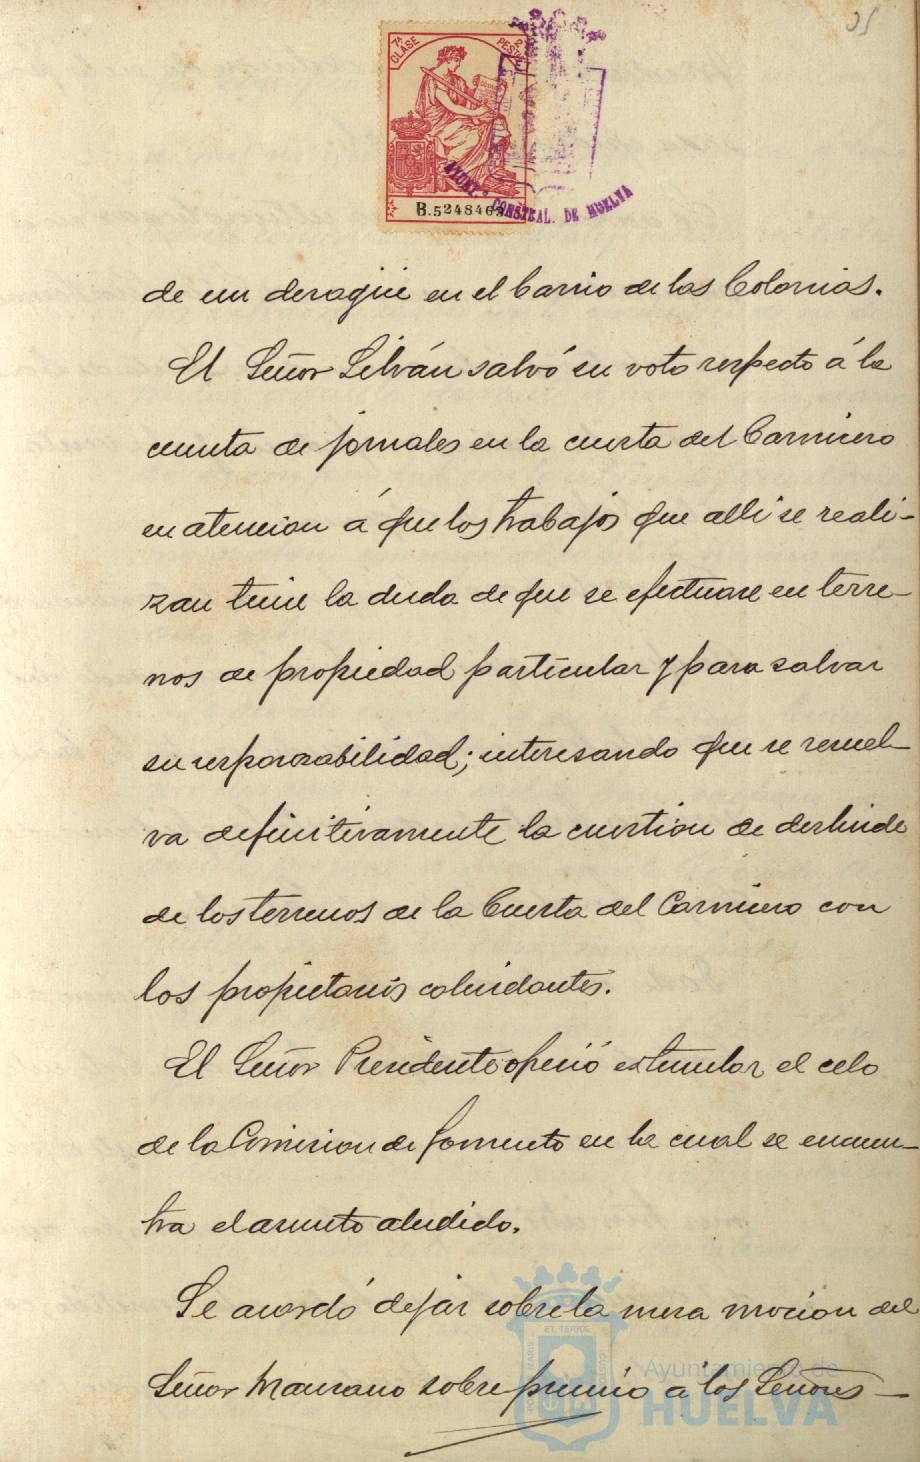 25
7ª CLASE
2 PESETAS
B.5248462
AYUNT.º CONSTEAL. DE HUELVA
de un desagüe en el barrio de las Colonias.
El Señor Silván salvó su voto respecto á la
cuenta de jornales en la cuesta del Carnicero
en atencion á que los trabajos que alli se reali-
zan tiene la duda de que se efectuase en terre-
nos de propiedad particular y para salvar
su responsabilidad; interesando que se resuel-
va definitivamente la cuestion de deslinde
de los terrenos de la Cuesta del Carnicero con
los propietarios colindantes.
El Señor Presidente ofreció estimular el celo
de la Comision de fomento en la cual se encuen-
tra el asunto aludido.
Se acordó dejar sobre la mesa mocion del
Señor Manzano sobre premio á los Señores
Ayuntamiento de
HUELVA